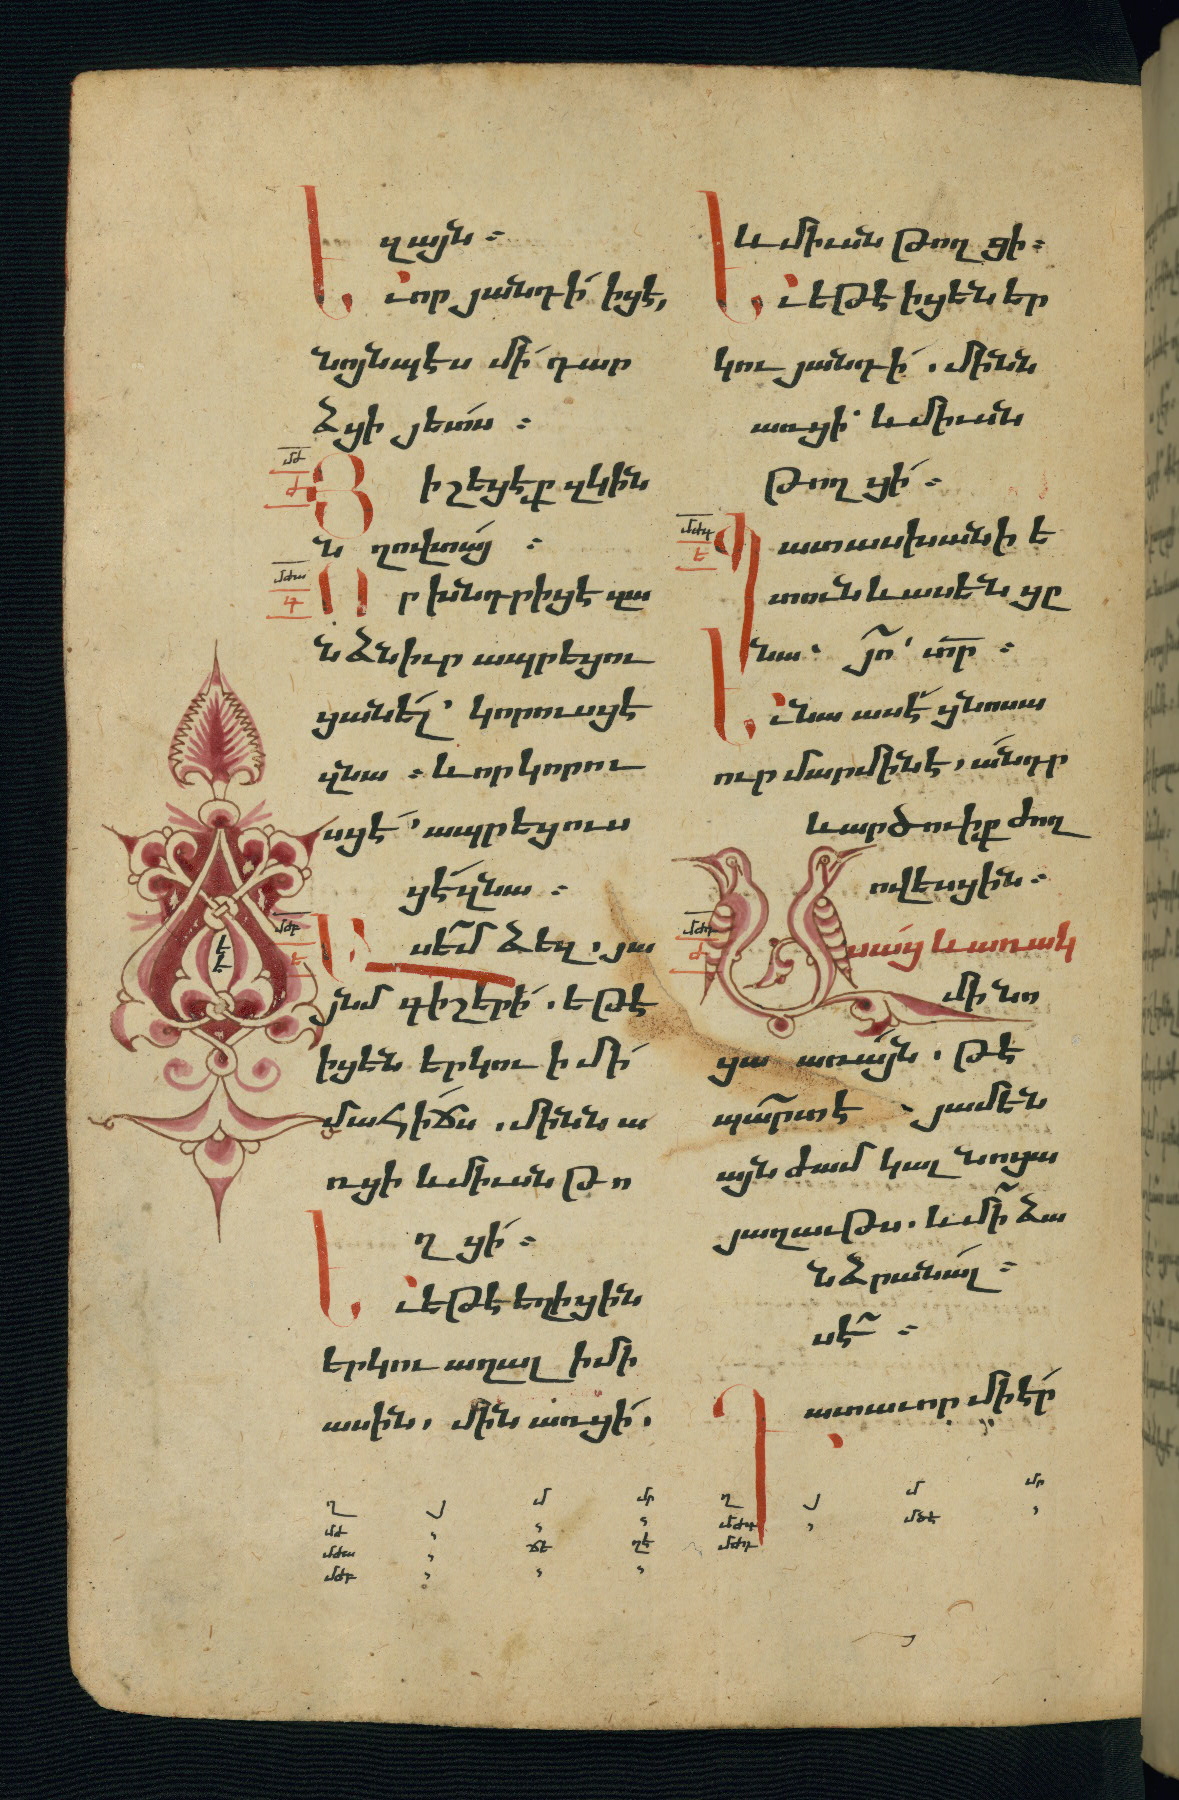 զայն ։
Եւ որ յանդի իցէ,
նոյնպէս մի՛ դար
ձցի յետս ։
Յիշեցէք զկին
ն ղովտայ ։
Որ խնդրիցէ զա
նձնիւր ապրեցու
ցանել՝ կորուսցէ
զնա ։ և որ կորու
սցէ՝ ապրեցուս
ցէ զնա ։
Ասեմ ձեզ, յա
յնմ գիշերի. եթէ
իցեն երկու ի մի
մահիճս. մինն ա
ռցի և միւսն թո
ղցի ։
Եւ եթէ եղիցին
երկու աղալ ի մի
ասին, մին առցի.
և միւսն թողցի ։
Եւ եթէ իցեն եր
կու յանդի. մինն
առցի՝ և միւսն
թողցի ։
Պատասխանի ե
տուն և ասեն ցը
նա՝ յո՞ տր ։
Եւ նա ասէ ցնոսա
ուր մարմինէ, անդր
և արծուիք ժող
ովեսցին ։
Ասաց և առակ
մի նո
ցա առայն. թէ
պարտէ յամեն
այն ժամ կալ նոցա
յաղաւթս. և մի ձա
նձրանալ ։
սէ ։
Դատաւոր մի էր